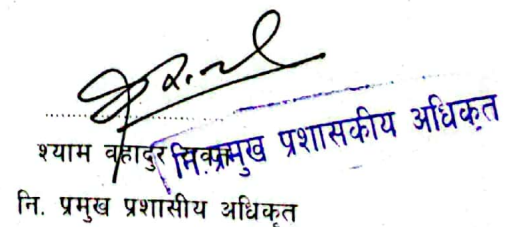 श्याम बहादुर
नि. प्रमुख प्रशासकीय अधिकृत
नि. प्रमुख प्रशासीय अधिकृत